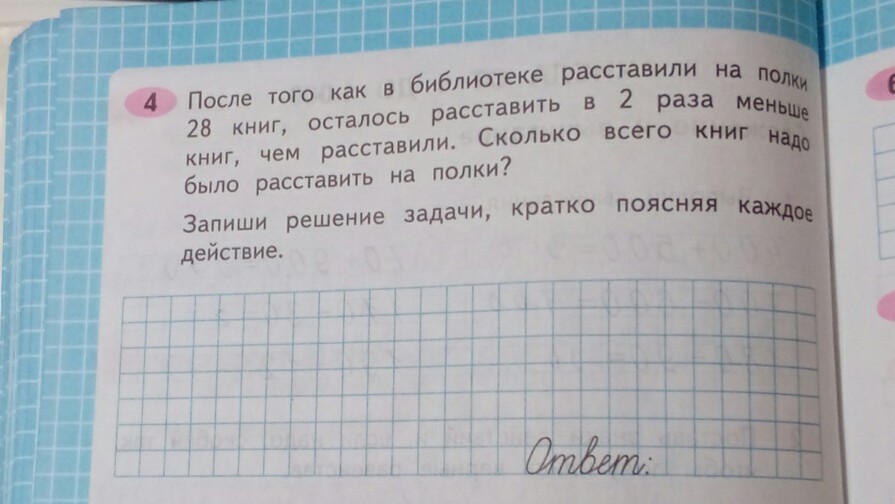 4 После того как в библиотеке расставили на полки
28 книг, осталось расставить в 2 раза меньше
книг, чем расставили. Сколько всего книг надо
было расставить на полки?
Запиши решение задачи, кратко поясняя каждое
действие.
Ответ: